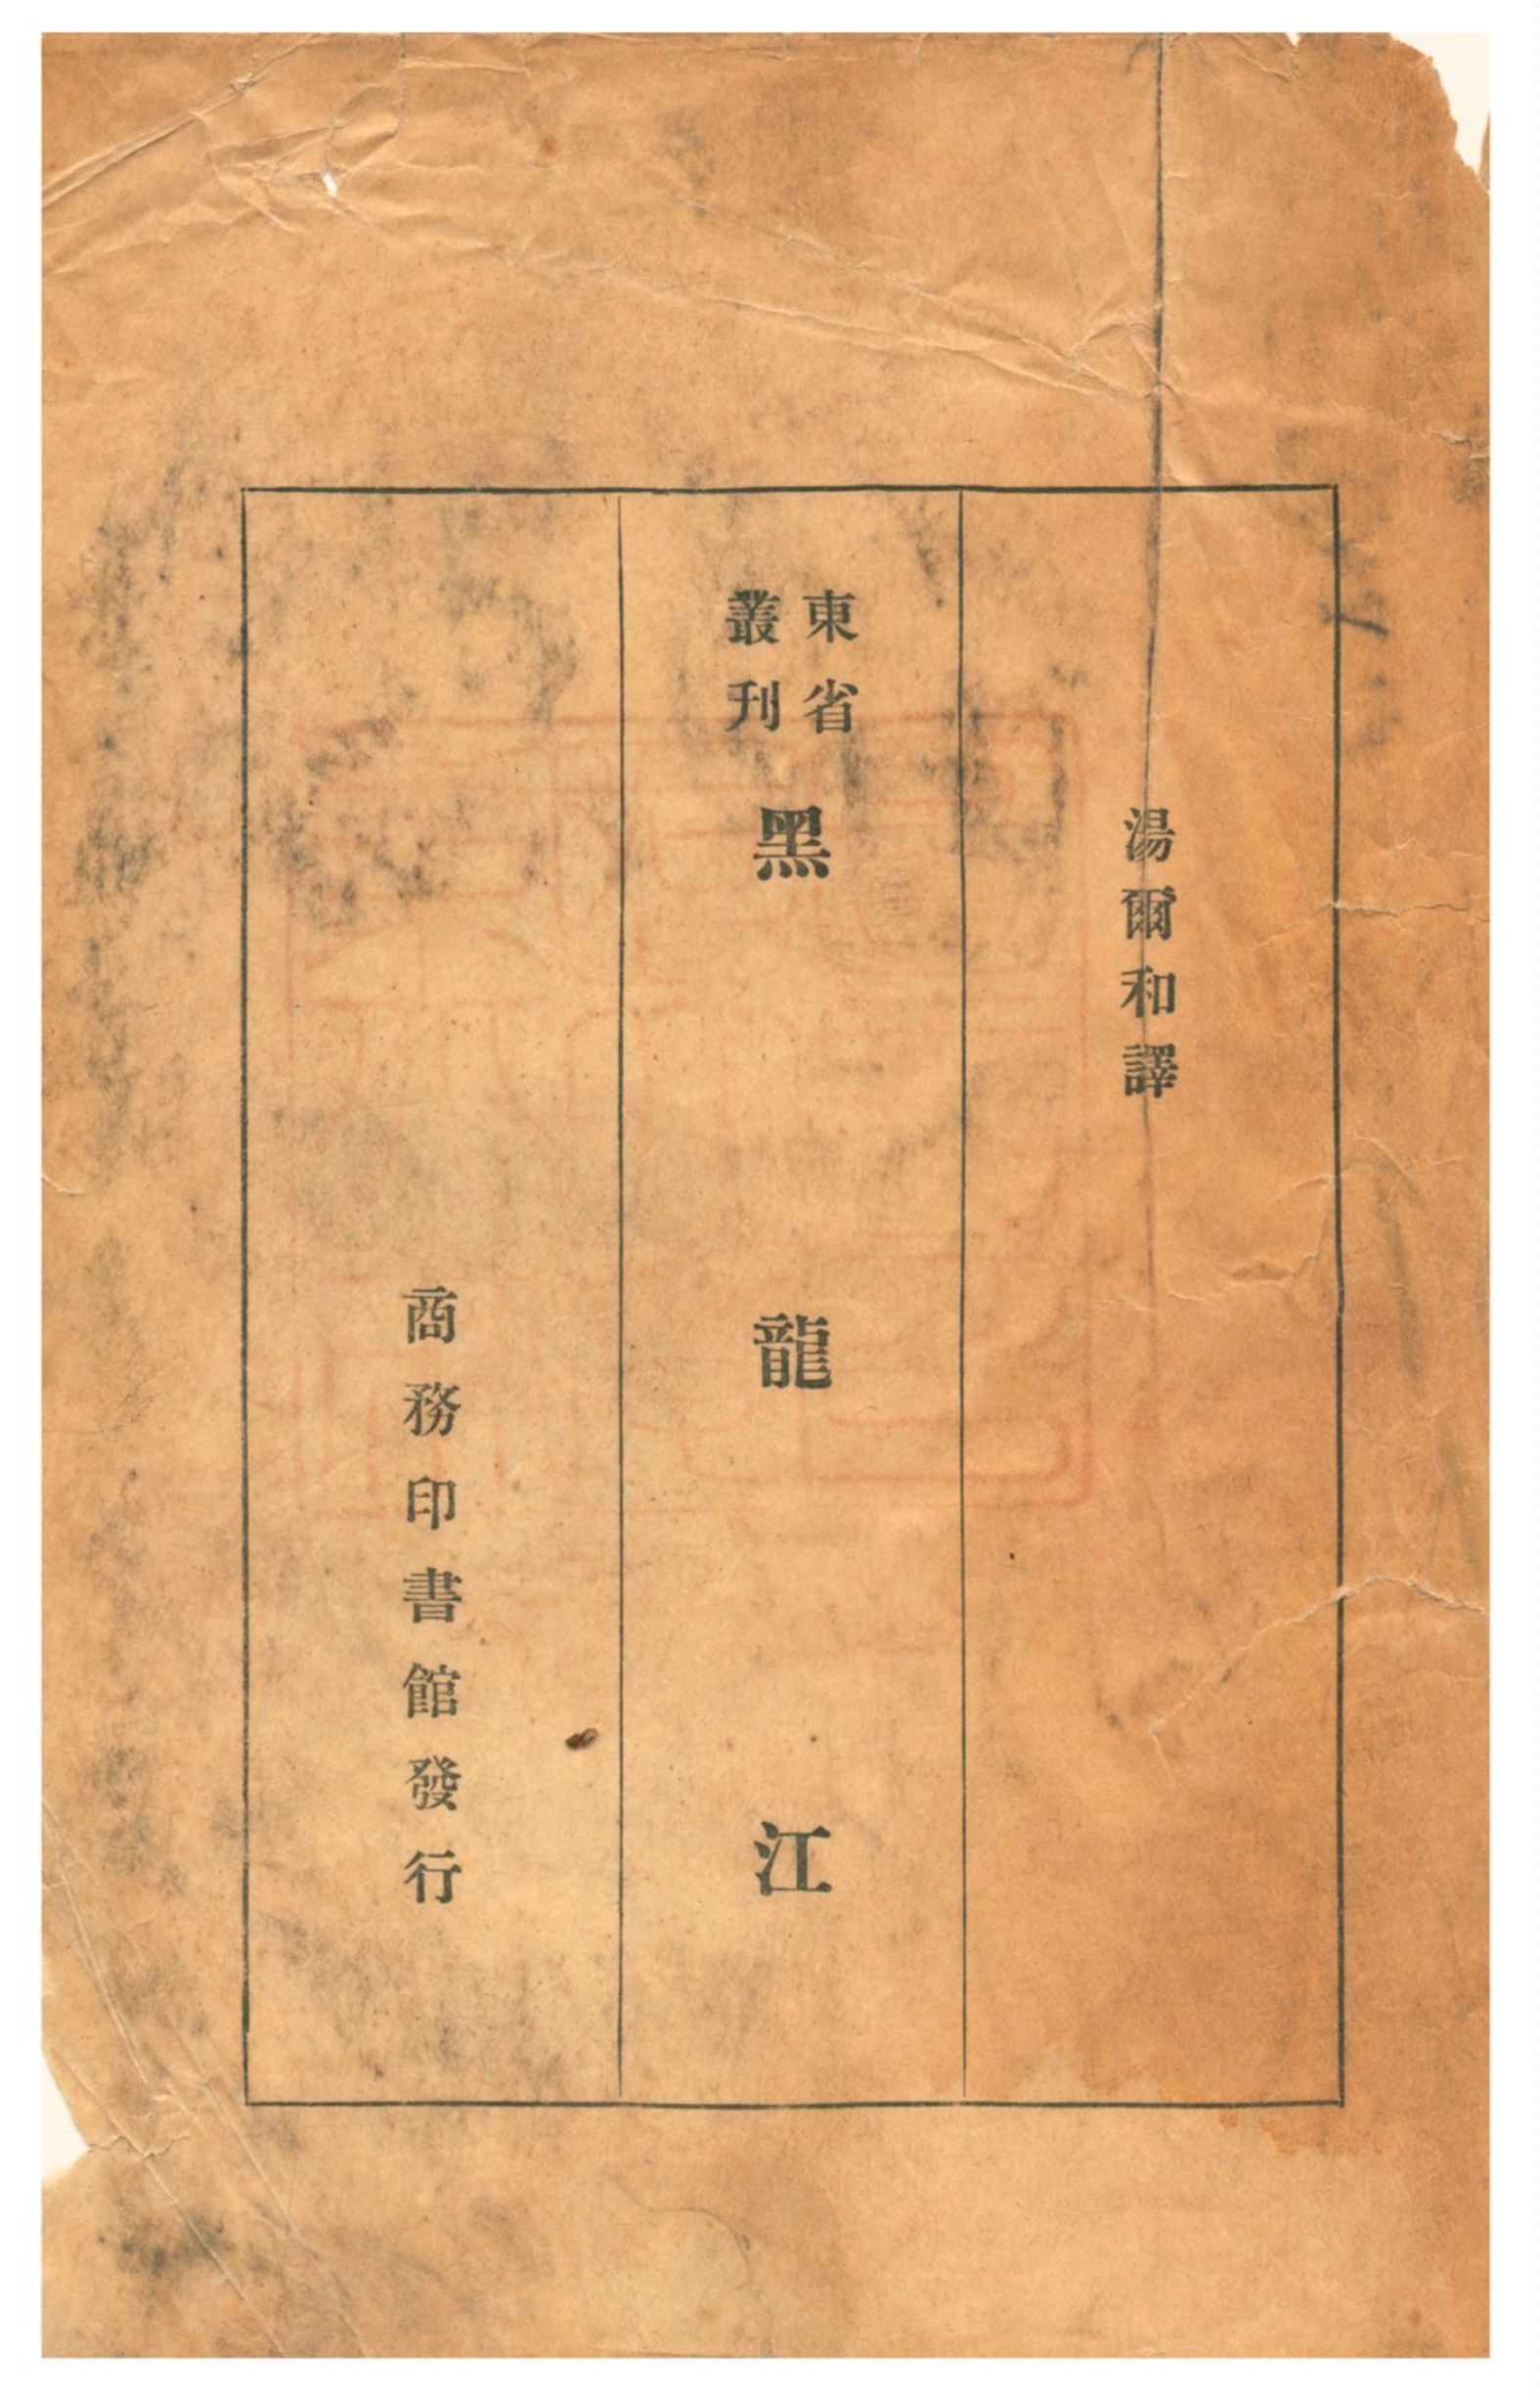 湯爾和譯
東省
叢刊
黑龍江
商務印書館發行